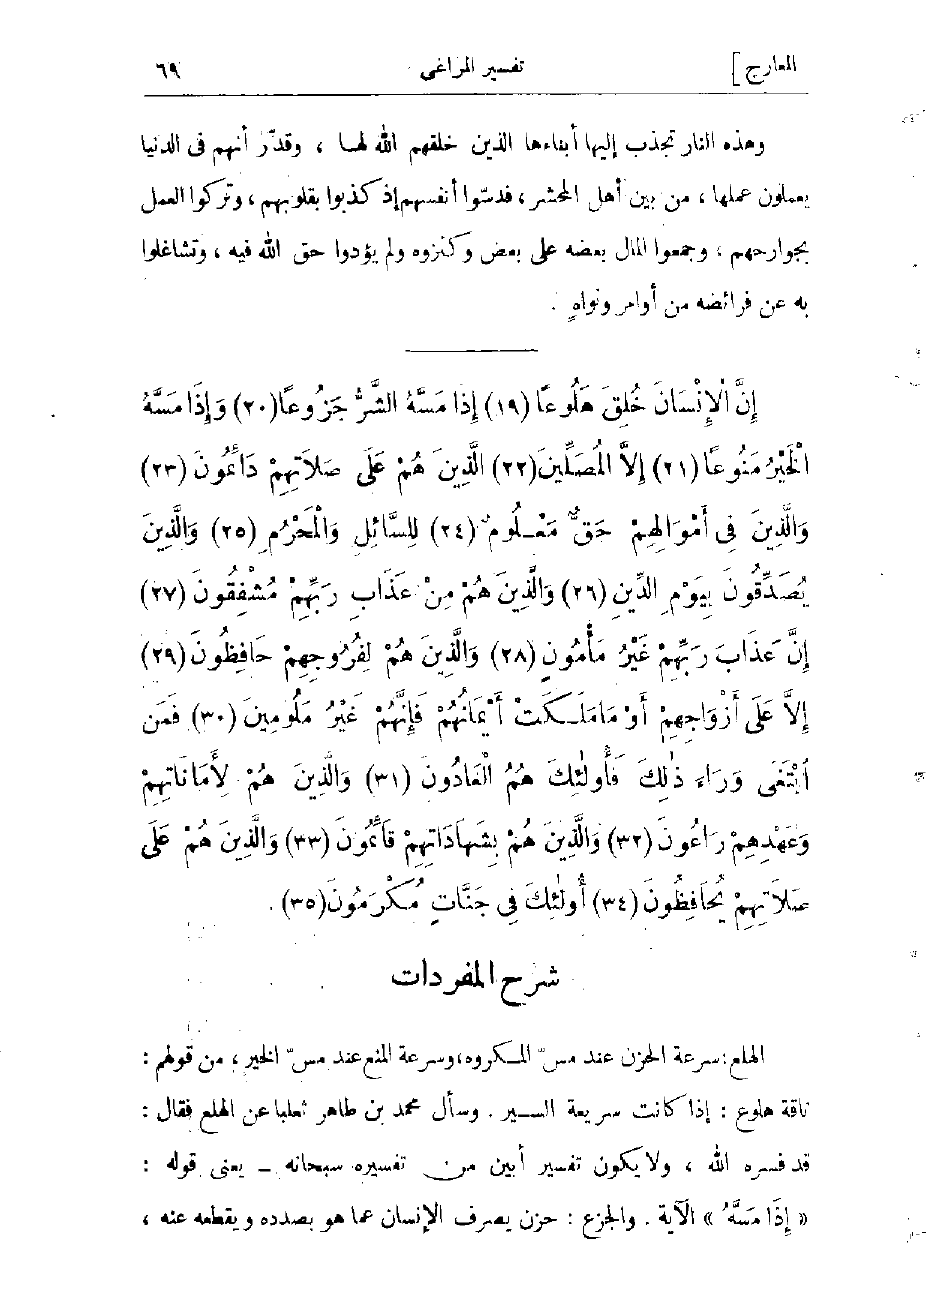 المعارج] تفسير المراغى ٦٩
وهذه النار تجذب إليها أبناءها الذين خلقهم الله لهـا ، وقدّر أنهم فى الدنيا
يعملون عملها ، من بين أهل المحشر ، فدسّوا أنفسهم إذ كذبوا بقلوبهم ، وتركوا العمل
بجوارحهم ، وجمعوا المال بعضه على بعض وكنزوه ولم يؤدوا حق الله فيه ، وتشاغلوا
به عن فرائضه من أوامر ونواهٍ .
إِنَّ الْإِنْسَانَ خُلِقَ هَلُوعًا (١٩) إِذَا مَسَّهُ الشَّرُّ جَزُوعًا (٢٠) وَإِذَا مَسَّهُ
الْخَيْرُ مَنُوعًا (٢١) إِلاَّ الْمُصَلِّينَ (٢٢) الَّذِينَ هُمْ عَلَى صَلاَتِهِمْ دَائُمُونَ (٢٣)
وَالَّذِينَ فِى أَمْوَالِهِمْ حَقٌّ مَعْـلُومٌ (٢٤) لِلسَّائِلِ وَالْمَحْرُمِ (٢٥) وَالَّذِينَ
يُصَدِّقُونَ بِيَوْمِ الدِّينِ (٢٦) وَالَّذِينَ هُمْ مِنْ عَذَابِ رَبِّهِمْ مُشْفِقُونَ (٢٧)
إِنَّ عَذَابَ رَبِّهِمْ غَيْرُ مَأْمُونٍ (٢٨) وَالَّذِينَ هُمْ لِفُرُوجِهِمْ حَافِظُونَ (٢٩)
إِلاَّ عَلَى أَزْوَاجِهِمْ أَوْ مَا مَلَـكَتْ أَيْمَانُهُمْ فَإِنَّهُمْ غَيْرُ مَلُومِينَ (٣٠) فَمَنِ
ابْتَغَى وَرَاءَ ذٰلِكَ فَأُولٰئِكَ هُمُ الْعَادُونَ (٣١) وَالَّذِينَ هُمْ لِأَمَانَاتِهِمْ
وَعَهْدِهِمْ رَاعُونَ (٣٢) وَالَّذِينَ هُمْ بِشَهَادَاتِهِمْ قَائُمُونَ (٣٣) وَالَّذِينَ هُمْ عَلَى
صَلاَتِهِمْ يُحَافِظُونَ (٣٤) أُولٰئِكَ فِى جَنَّاتٍ مُـكْرَمُونَ (٣٥) .
شرح المفردات
الهلع : سرعة الحزن عند مسّ المـكروه ، وسرعة المنع عند مسّ الخير ، من قولهم :
ناقة هلوع : إذا كانت سريعة السـير . وسأل محمد بن طاهر ثعلبا عن الهلع فقال :
قد فسره الله ، ولا يكون تفسير أبين من تفسيره سبحانه ــ يعنى قوله :
« إِذَا مَسَّهُ » الآية . والجزع : حزن يصرف الإنسان عما هو بصدده ويقطعه عنه ،